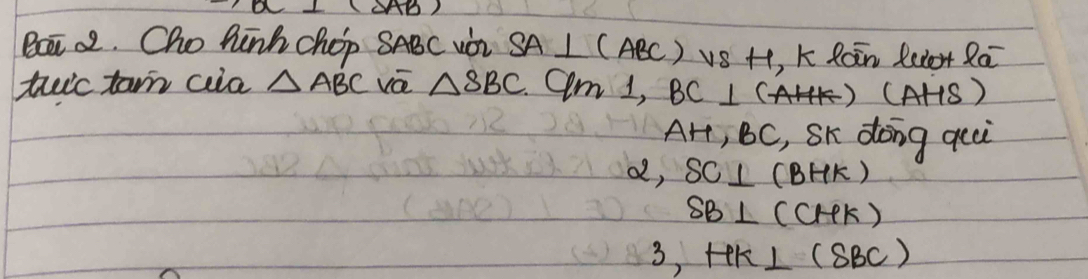 BC ⊥ (SAB)
Bài 2. Cho hình chóp SABC với SA ⊥ (ABC) vs H, K lần lượt là
trực tâm của △ ABC và △SBC. Cm 1, BC ⊥ (AHK) (AHS)
AH, BC, SK đồng qui
2, SC ⊥ (BHK)
SB ⊥ (CHK)
3, HK ⊥ (SBC)